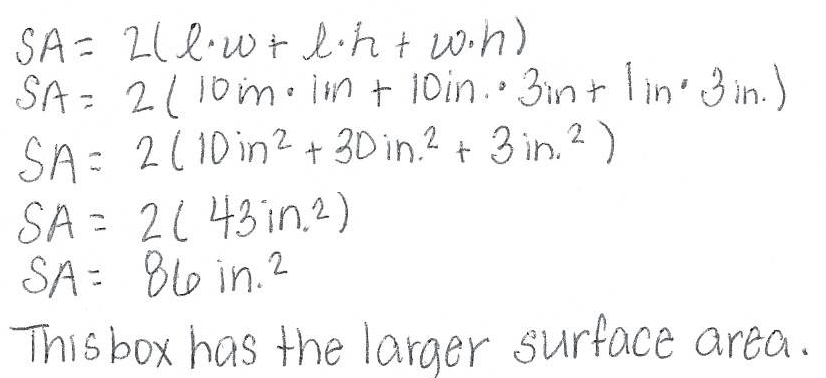 SA = 2(l·w + l·h + w·h)
SA = 2(10in · 1in + 10in. · 3in + 1in · 3in.)
SA = 2(10in² + 30in.² + 3in.²)
SA = 2(43in.²)
SA = 86in.²
This box has the larger surface area.